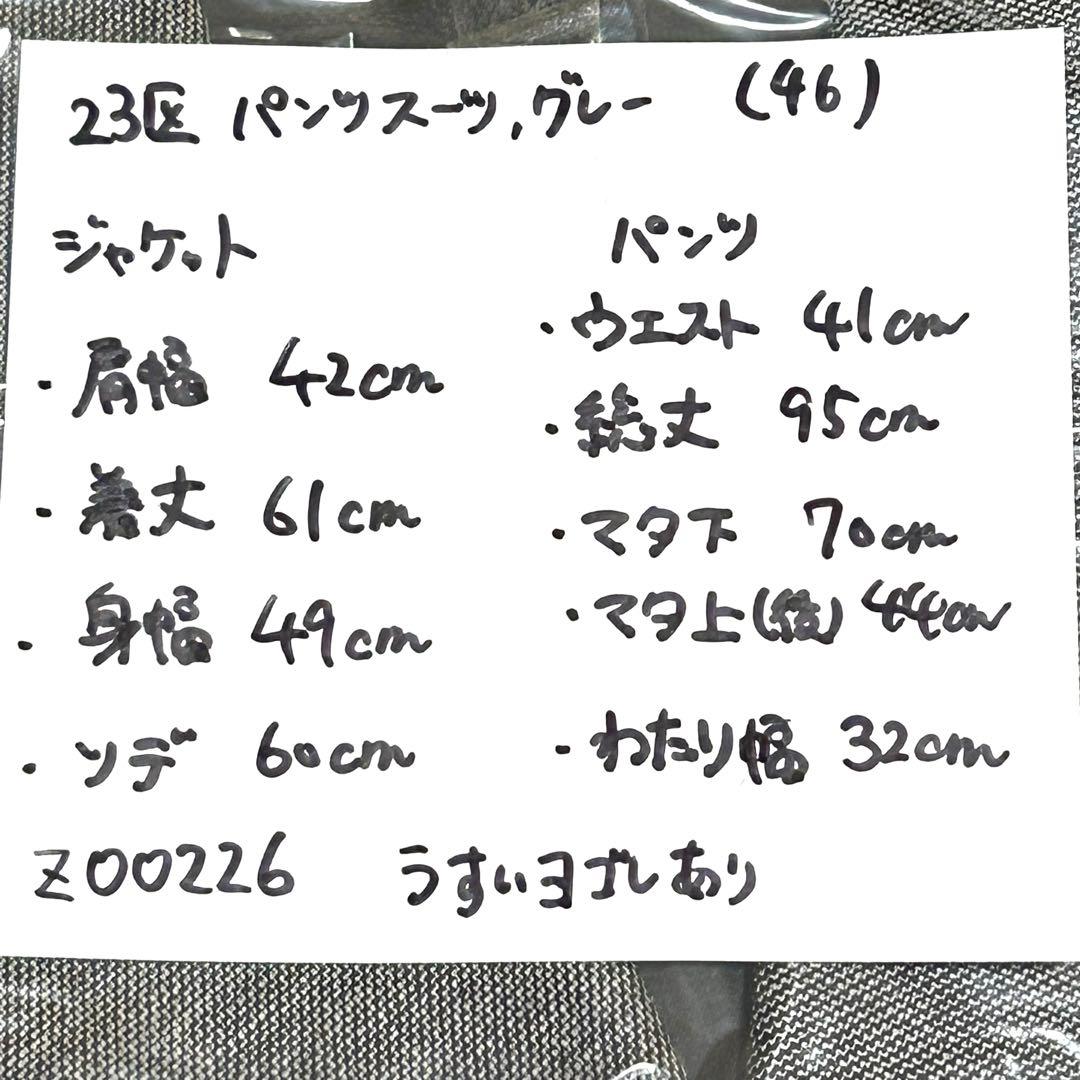 23区 パンツスーツ,グレー (46)
ジャケット
・肩幅 42cm
・着丈 61cm
・身幅 49cm
・ソデ 60cm
パンツ
・ウエスト 41cm
・総丈 95cm
・マタ下 70cm
・マタ上(後) 44cm
・わたり幅 32cm
Z00226 うすいヨゴレあり